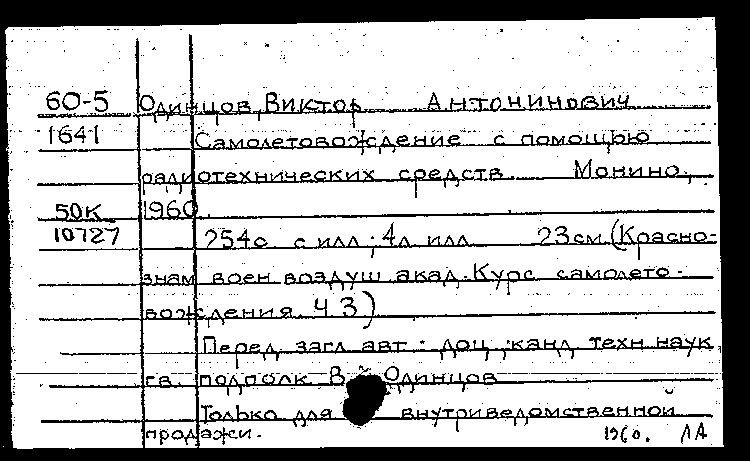 60-5 Одинцов, Виктор Антонинович
1641 Самолетовождение с помощью
радиотехнических средств. Монино,
50К 1960.
10727 254с. с илл; 4л илл 23см (Красно-
знам воен воздуш акад. Курс самолето-
вождения Ч 3)
Перед загл авт: доц, канд техн наук
гв. подполк В Одинцов
Только для внутриведомственной
продажи. 1960. ЛА